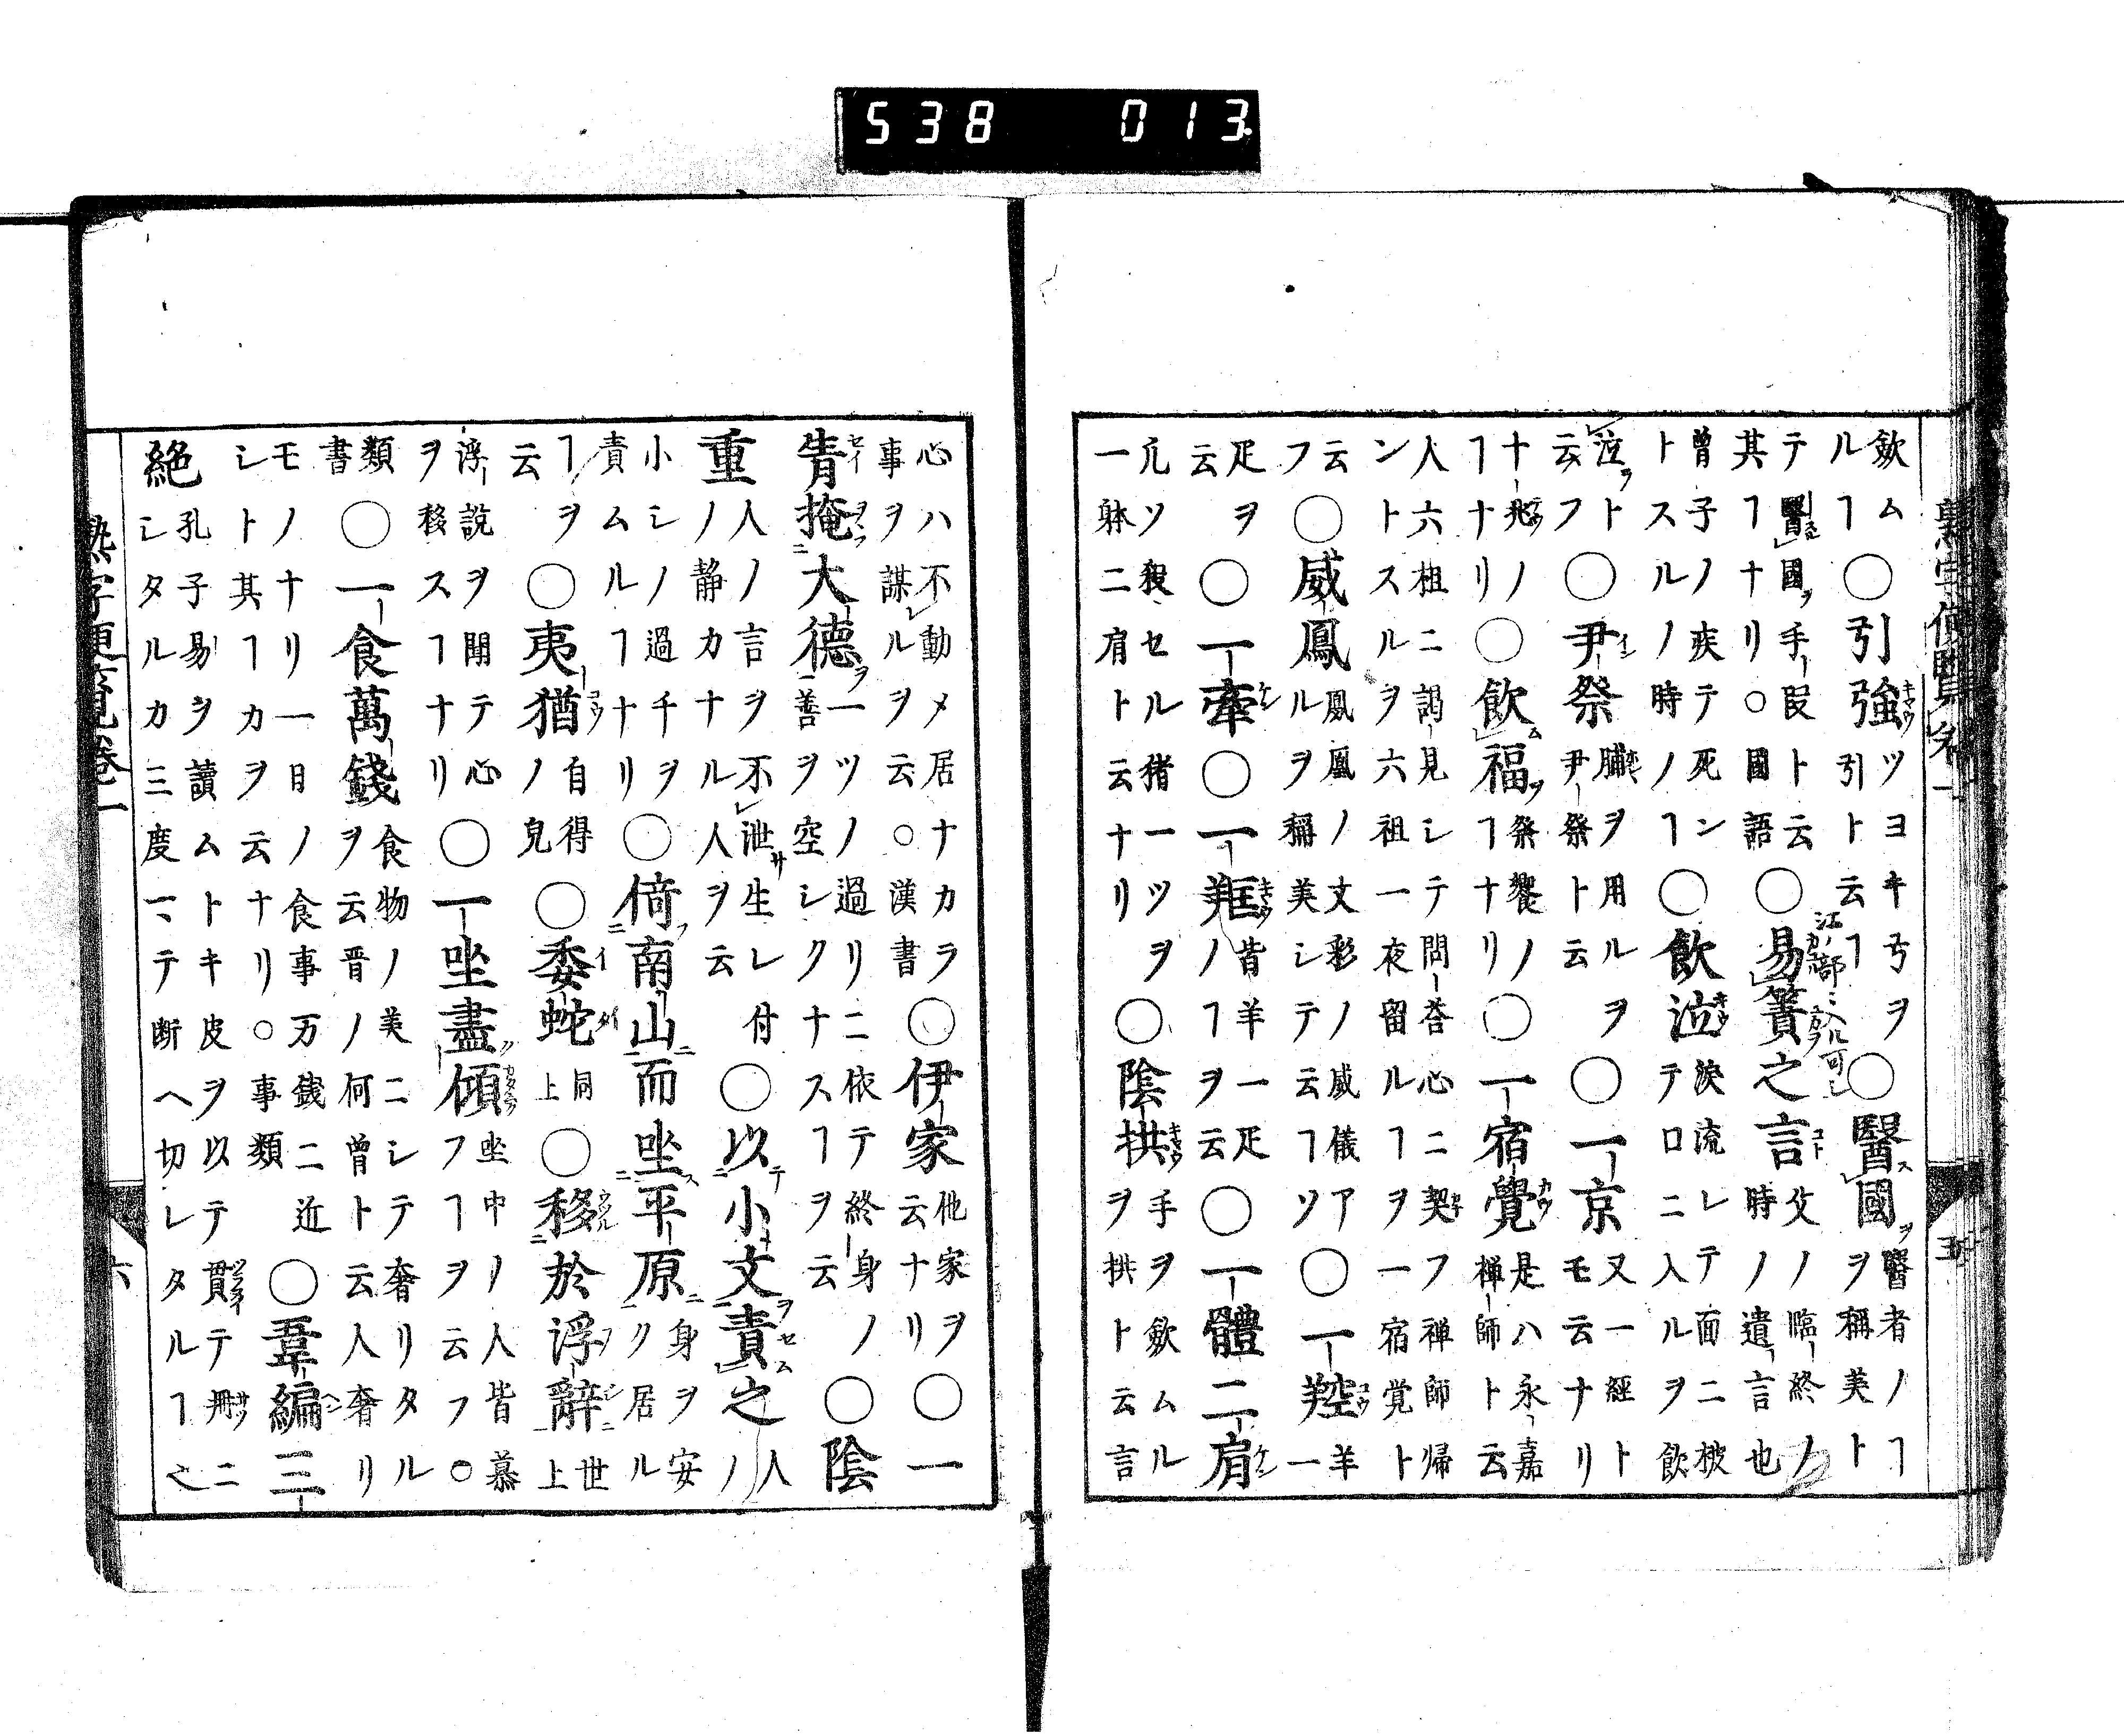 538 013
熟字便覧巻一 五
歛ムルヿ○引強ツヨキ弓ヲ引ト云ヿ○醫國醫者ノヿヲ稱美ト
テ醫國手民ト云其ヿナリ○國語○易簀之言父ノ臨終ノ時ノ遺言也
江ノ部ニ入ル可シ
曽子ノ疾テ死ントスルノ時ノヿ○飲泣涙流レテ面ニ被テ口ニ入ルヲ飲
泣ヲト云フ○尹祭脯ヲ用ルヲ尹祭ト云○一京又一經トモ云ナリ
十兆ノヿナリ○飲福祭饗ノヿナリ○一宿覺是ハ永嘉禅師ト云
人六祖ニ謁見シテ問荅心ニ契フ禅師帰ントスルヲ六祖一夜留ルヿヲ一宿覚ト
云フ○威鳳鳳凰ノ文彩ノ威儀アルヲ稱美シテ云ヿツ○一羫羊一
疋ヲ云○一牽○一羫昔羊一疋ノヿヲ云○一體二肩
凢ツ殺セル猪一ツヲ一躰二肩ト云十リ○陰拱手ヲ歛ムルヲ拱ト云言
心ハ不動メ居ナカラ事ヲ謀ルヲ云○漢書○伊家他家ヲ云ナリ○一
眚掩大德一ツノ過リニ依テ終身ノ善ヲ空シクナスヿヲ云○陰
重人ノ言ヲ不泄生レ付ノ静カナル人ヲ云○以小文責之人ノ
小シノ過千ヲ責ムルヿナリ○倚南山而坐平原身ヲ安ク居ル
ヿヲ云○夷猶自得ノ皃○委蛇同上○移於浮辭世上
浮說ヲ聞テ心ヲ移スヿナリ○一坐盡傾坐中ノ人皆慕フヿヲ云フ○
類書○一食萬錢食物ノ美ニシテ奢リタルヲ云晋ノ何曽ト云人奢リ
モノナリ一日ノ食事万銭ニ近シト其ヿカヲ云ナリ○事類○韋編三
絕孔子易ヲ讀ムトキ皮ヲ以テ貫テ冊ニシタルカ三度マテ断ヘ切レタルヿ之
熟字便覧巻一 六